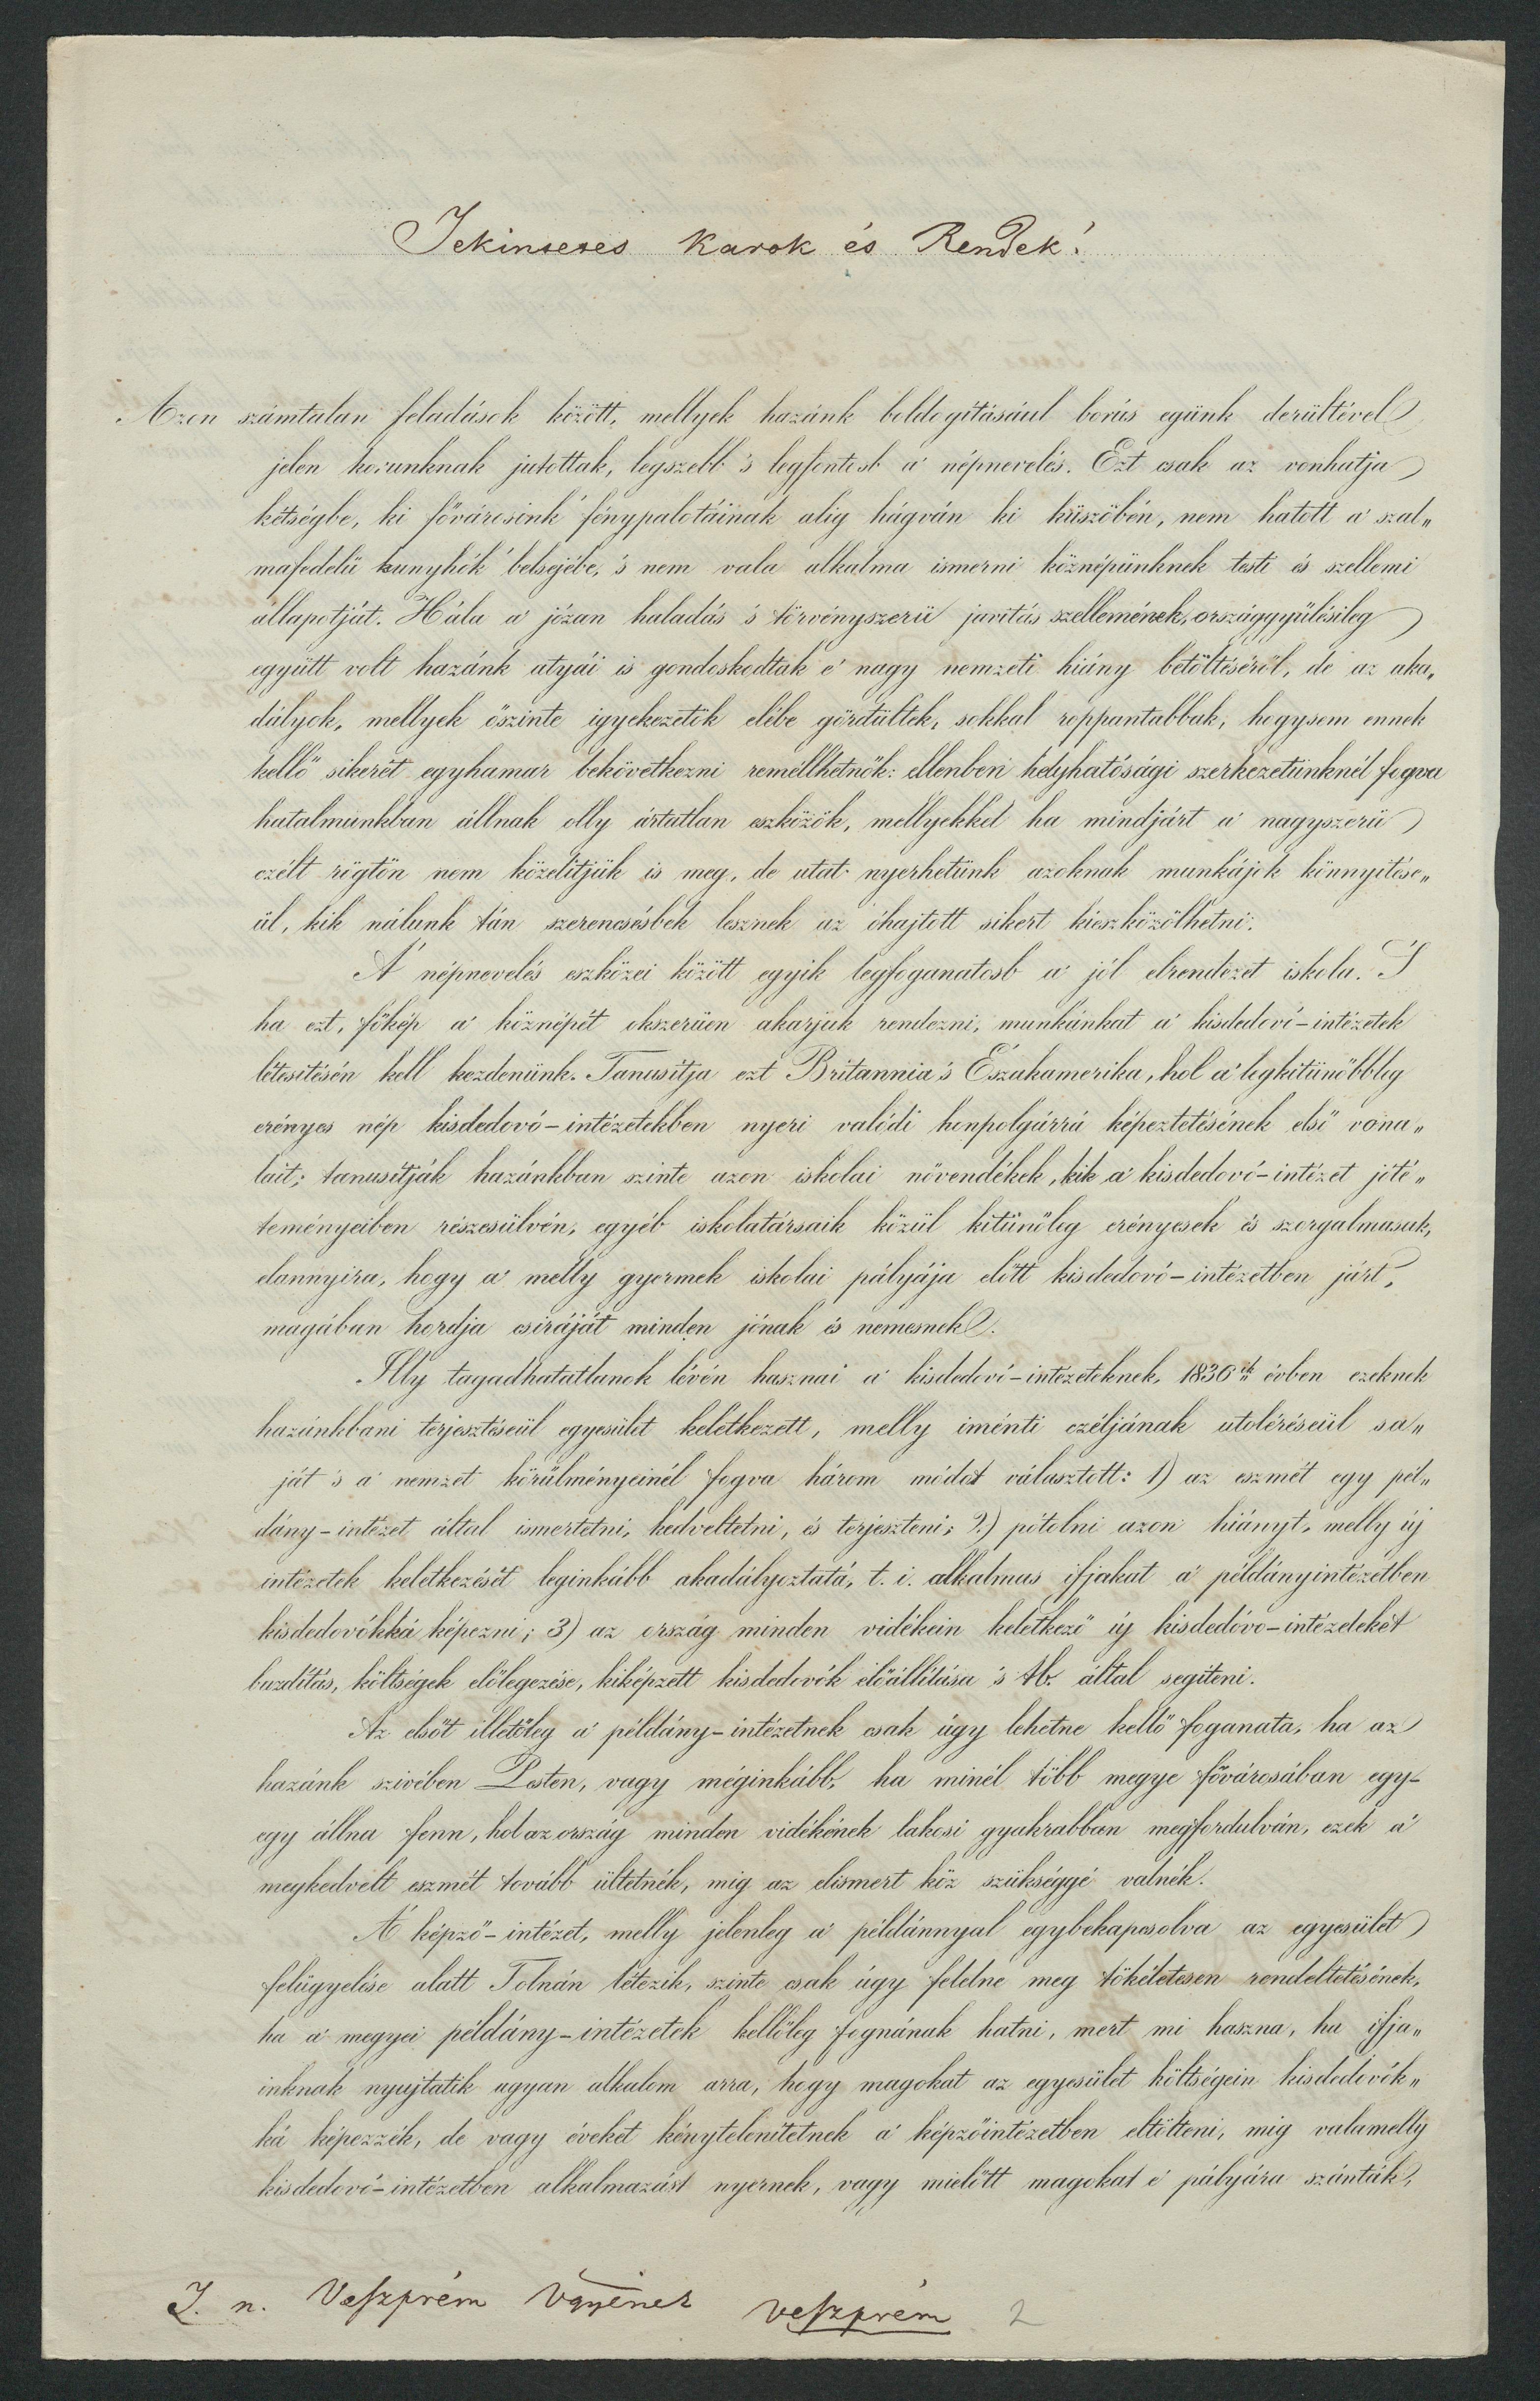 Tekintetes Karok és Rendek!
Azon számtalan feladások között, mellyek hazánk boldogításáúl borús egünk derültével
jelen korunknak jutottak, legszebb 's legfontosb a' népnevelés. Ezt csak az vonhatja
kétségbe, ki fővárosink' fénypalotáinak alig hágván ki küszöbén, nem hatott a' szal„
mafedelü kunyhók' belsejébe, 's nem vala alkalma ismerni köznépünknek testi és szellemi
állapotját. Hála a' józan haladás 's törvényszerü javitás szellemének, országgyülésileg
együtt volt hazánk atyái is gondoskodtak e' nagy nemzeti hiány betöltéséről, de az aka„
dályok, mellyek öszinte igyekezetök elébe gördültek, sokkal roppantabbak, hogysem ennek
kellő sikerét egyhamar bekövetkezni remélhetnők: ellenben helyhatósági szerkezetünknél fogva
hatalmunkban állnak olly ártatlan eszközök, mellyekkel ha mindjárt a' nagyszerü
czélt rögtön nem közelítjük is meg, de utat nyerhetünk azoknak munkájok könnyitése„
ül, kik nálunk tán szerencsésbek lesznek az óhajtott sikert kieszközölhetni.
A' népnevelés eszközei között egyik legfoganatosb a' jól elrendezet iskola. S
ha ezt, főkép a' köznépét okszerüen akarjuk rendezni, munkánkat a' kisdedovó-intézetek
létesitésén kell kezdenünk. Tanusítja ezt Britannia 's Északamerika, hol a' legkitünőbbleg
erényes nép kisdedovó-intézetekben nyeri valódi honpolgárrá képeztetésének első vona„
lait; tanusítják hazánkban szinte azon iskolai növendékek, kik a' kisdedovó-intézet jóté„
teményeiben részesülvén, egyéb iskolatársaik közül kitünőleg erényesek és szorgalmasak,
elannyira, hogy a' melly gyermek iskolai pályája előtt kisdedovó-intézetben járt,
magában hordja csiráját minden jónak és nemesnek.
Illy tagadhatatlanok lévén hasznai a' kisdedovó-intézeteknek, 1836ik évben ezeknek
hazánkbani terjesztéseül egyesület keletkezett, melly iménti czéljának utoléréseül sa„
ját 's a' nemzet körülményeinél fogva három módot választott: 1) az eszmét egy pél„
dány-intézet által ismertetni, kedveltetni, és terjeszteni; 2.) pótolni azon hiányt, melly új
intézetek keletkezését leginkább akadályoztatá, t. i. alkalmas ifjakat a' példányintézetben
kisdedovókká képezni; 3) az ország minden vidékein keletkező új kisdedóvo-intézeteket
buzdítás, költségek előlegezése, kiképzett kisdedovók előállítása 's tb. által segiteni.
Az elsőt illetőleg a' példány-intézetnek csak úgy lehetne kellő foganata, ha az
hazánk szivében Pesten, vagy méginkább, ha minél több megye fővárosában egy-
egy állna fenn, hol az ország minden vidékének lakosi gyakrabban megfordulván, ezek a'
megkedvelt eszmét tovább ültetnék, mig az elismert köz szükséggé valnék.
A' képző-intézet, melly jelenleg a' példánnyal egybekapcsolva az egyesület
felügyelése alatt Tolnán létezik, szinte csak úgy felelne meg tökéletesen rendeltetésének,
ha a' megyei példány-intézetek kellőleg fognának hatni, mert mi haszna, ha ifja„
inknak nyujtatik ugyan alkalom arra, hogy magokat az egyesület költségein kisdedovók„
ká képezzék, de vagy éveket kénytelenitetnek a' képzőintézetben eltölteni, mig valamelly
kisdedovó-intézetben alkalmazást nyernek, vagy mielőtt magokat e' pályára szánták,
T. n. Veszprém Vgyének Veszprém 2